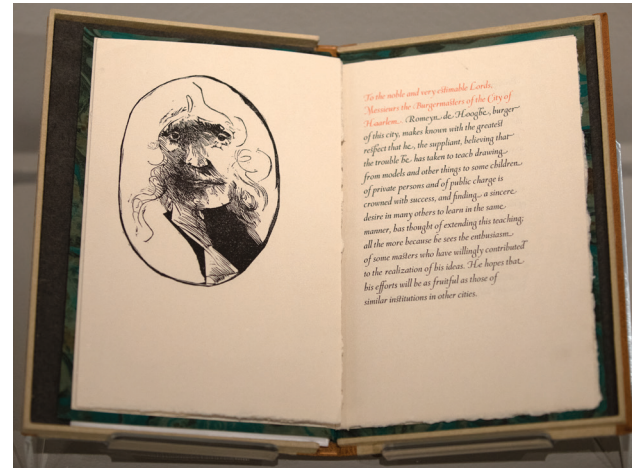 To the noble and very estimable Lords,
Messieurs the Burgermasters of the City of
Haarlem. Romeyn de Hooghe, burger
of this city, makes known with the greatest
respect that he, the suppliant, believing that
the trouble he has taken to teach drawing
from models and other things to some children
of private persons and of public charge is
crowned with success, and finding a sincere
desire in many others to learn in the same
manner, has thought of extending this teaching;
all the more because he sees the enthusiasm
of some masters who have willingly contributed
to the realization of his ideas. He hopes that
his efforts will be as fruitful as those of
similar institutions in other cities.